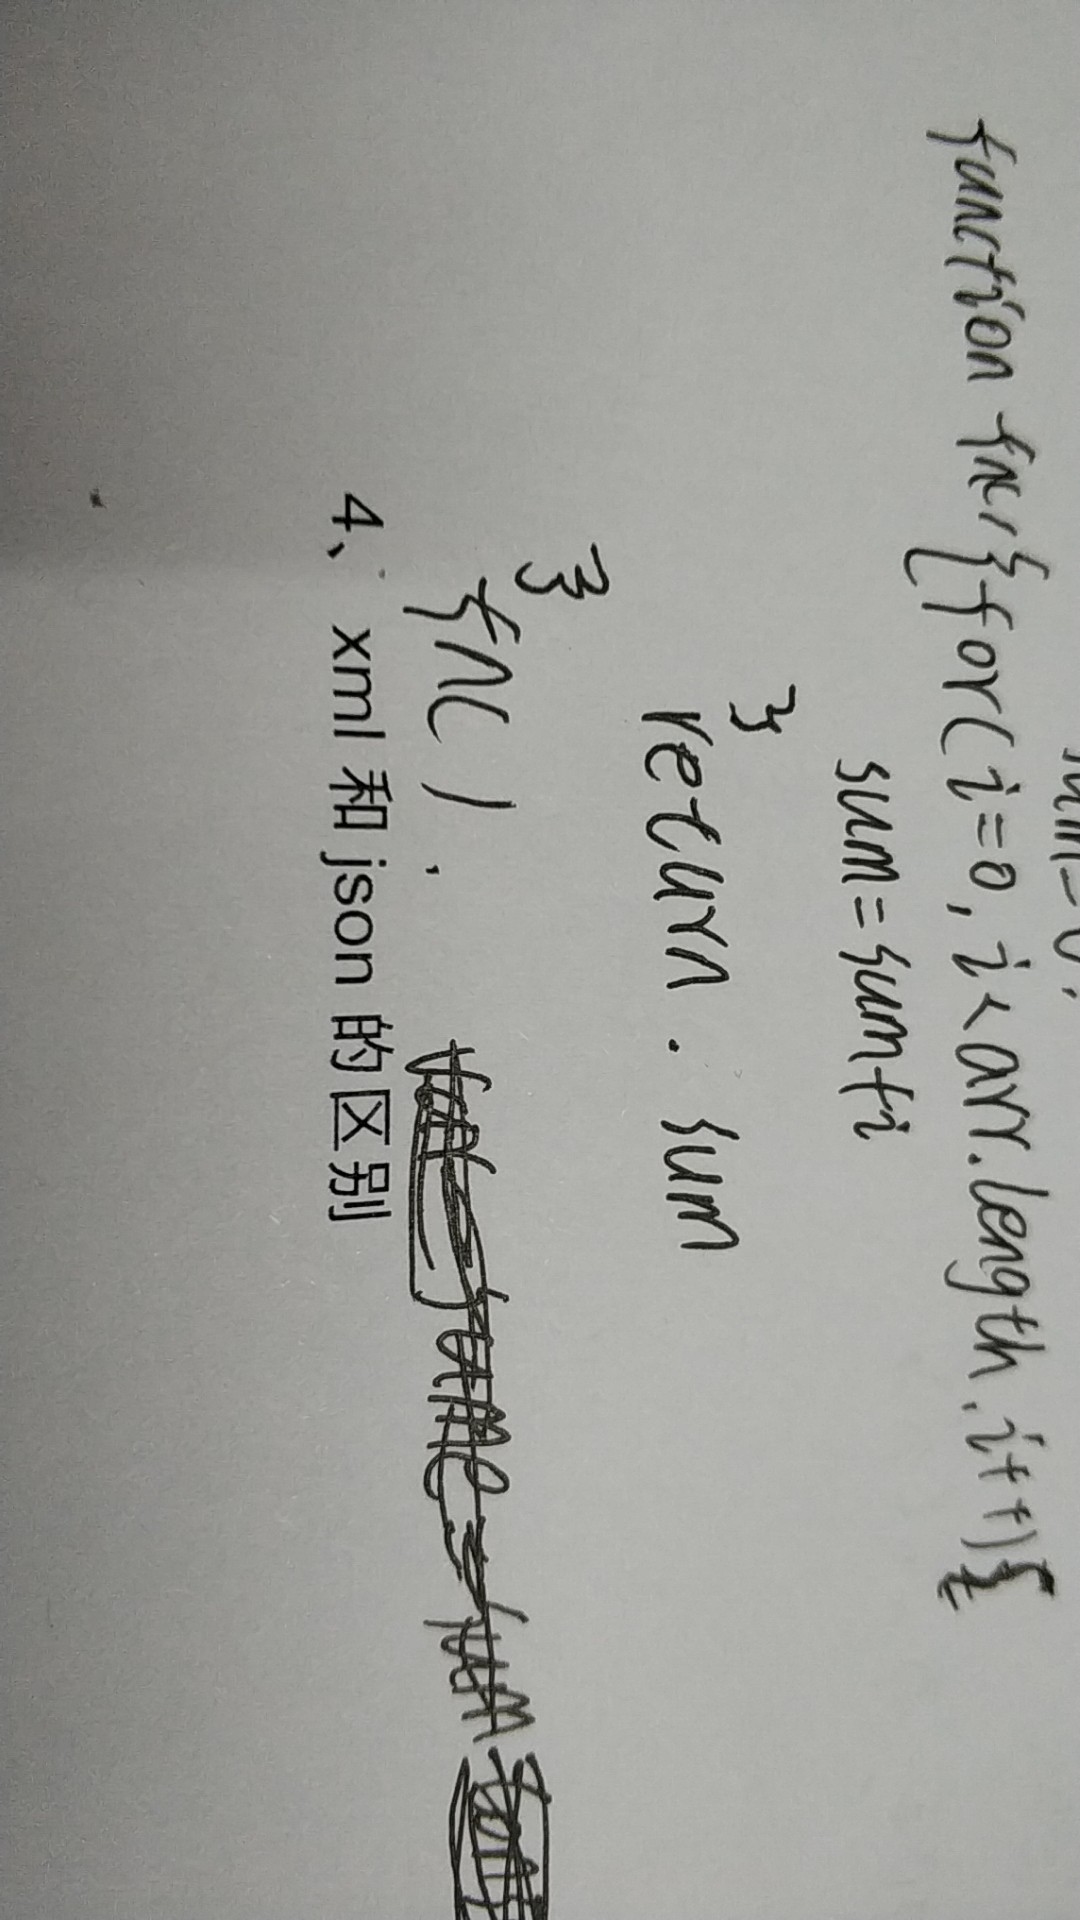 function fn(){for(i=0,i<arr.length,i++){
sum=sum+i
}
return.sum
}
fn()
4、xml 和 json 的区别